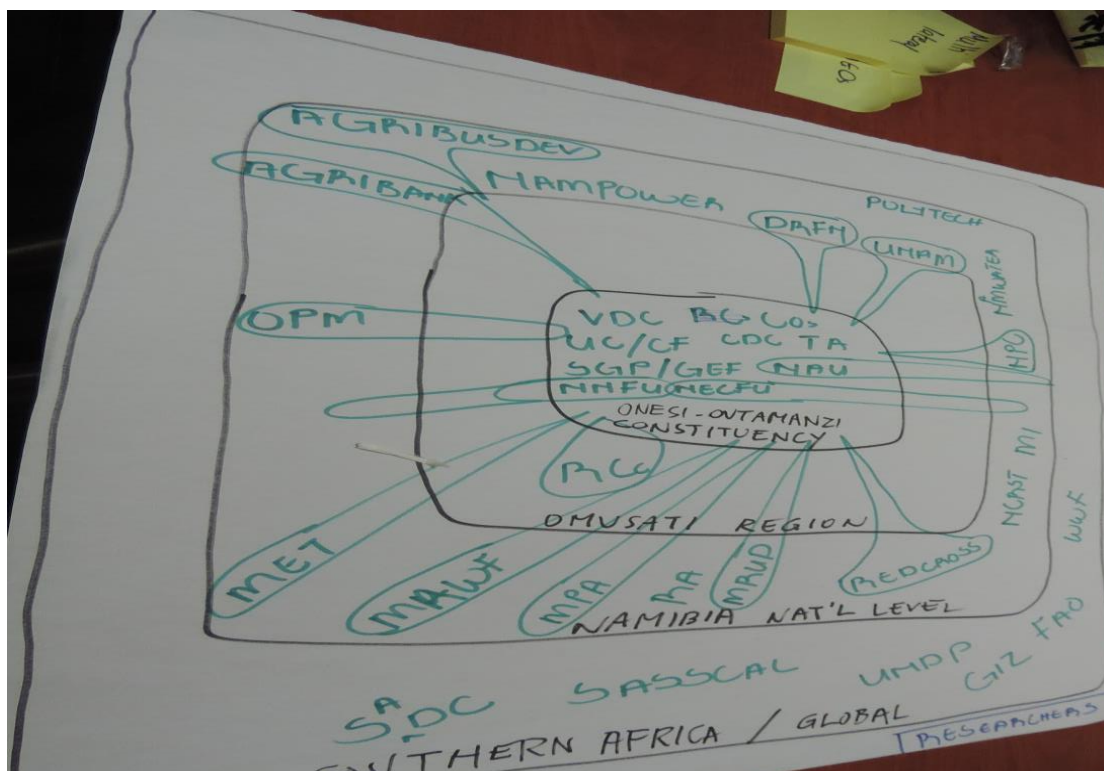 AGRIBUSDEV
AGRIBANK
NAMPOWER
POLYTECH
DRFN
UNAM
NMWATER
NPC
OPM
VDC RG COs
UC/CF CDC TA
SGP/GEF NAU
NNFU NECFU
ONESI-OUTAMANZI
CONSTITUENCY
RCC
OMUSATI REGION
NCAST MI
WWF
MET
MAWF
MPA
RA
MRUD
REDCROSS
NAMIBIA NAT'L LEVEL
SADC
SASSCAL
UNDP
GIZ
FAO
AFRICA / GLOBAL
RESEARCHERS